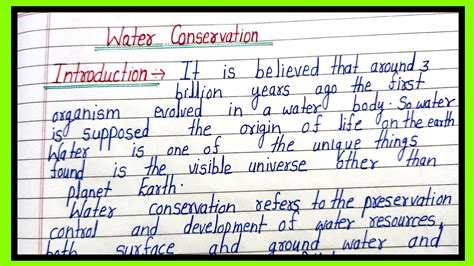 Water Conservation
Introduction→ It is believed that around 3
billion years ago the first
organism evolved in a water body. So water
is supposed the origin of life on the earth
Water is one of the unique things
found is the visible universe other than
planet Earth.
Water conservation refers to the preservation
control and development of water resources,
both surface and ground water and